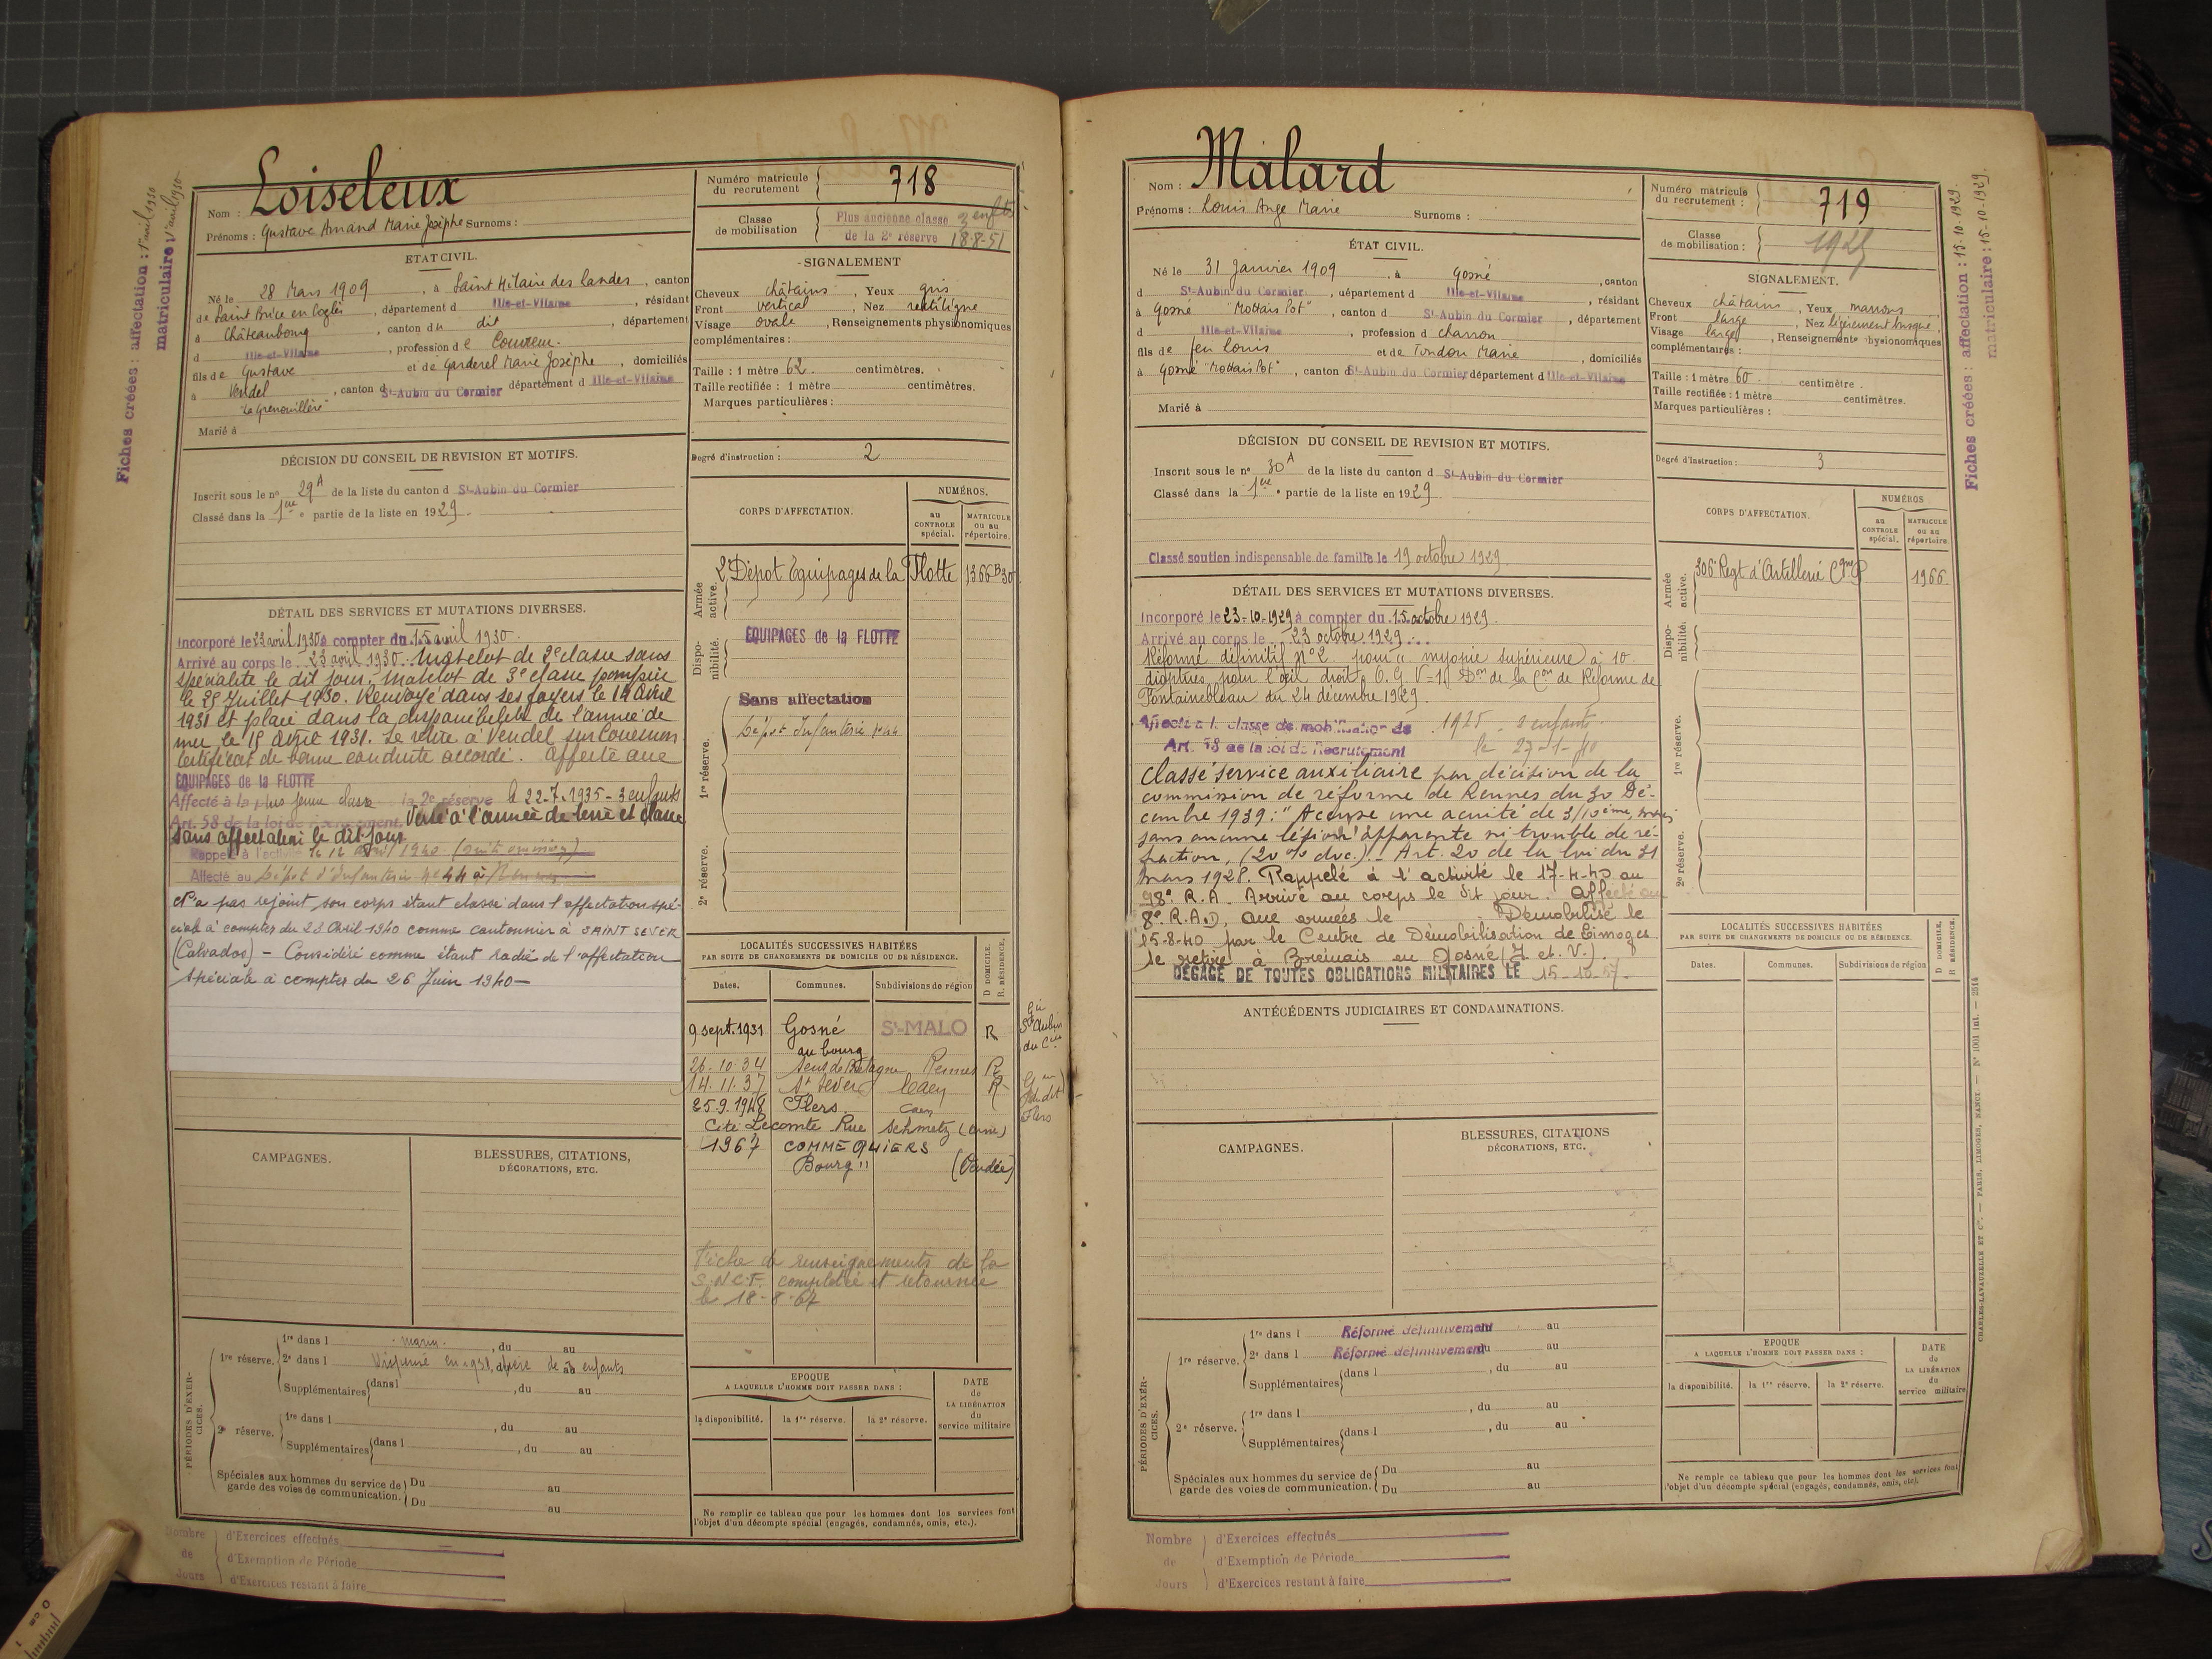 Fiches créées : affectation : 1er avril 1930
matriculaire : 1er avril 1930
Nom : Loiseleux
Prénoms : Gustave Amand Marie Josèphe Surnoms :
Numéro matricule du recrutement 718
Classe de mobilisation Plus ancienne classe 3 enfts
de la 2e réserve 18-8-51
ETAT CIVIL.
Né le 28 Mars 1909, à Saint Hilaire des Landes, canton
de Saint Brice en Coglès, département d Ille-et-Vilaine, résidant
à Châteaubourg, canton du dit, département
d Ille-et-Vilaine, profession de Couvreur.
fils de Gustave et de Garderel Marie Josèphe, domiciliés
à Vendel, canton d St-Aubin du Cormier département d Ille-et-Vilaine
"La Grenouillère"
Marié à
SIGNALEMENT
Cheveux châtains, Yeux gris
Front vertical, Nez rectiligne
Visage ovale, Renseignements physionomiques
complémentaires :
Taille : 1 mètre 62. centimètres.
Taille rectifiée : 1 mètre centimètres.
Marques particulières :
Degré d'instruction : 2
DÉCISION DU CONSEIL DE REVISION ET MOTIFS.
Inscrit sous le no 29A de la liste du canton d St-Aubin du Cormier
Classé dans la 1ère partie de la liste en 1929.
CORPS D'AFFECTATION.
NUMÉROS.
au CONTROLE spécial.
MATRICULE ou au répertoire.
Armée active.
2e Dépôt Equipages de la Flotte 1366 B 30
Disponibilité.
EQUIPAGES de la FLOTTE
1re réserve.
Sans affectation
Dépôt Infanterie no 44
2e réserve.
DÉTAIL DES SERVICES ET MUTATIONS DIVERSES.
Incorporé le 23 avril 1930 à compter du 15 avril 1930.
Arrivé au corps le 23 avril 1930. Matelot de 2e classe sans
spécialité le dit jour. Matelot de 3e classe pompier
le 25 Juillet 1930. Renvoyé dans ses foyers le 14 Avril
1931 et placé dans la disponibilité de l'armée de
mer le 15 Avril 1931. Se retire à Vendel sur Couesnon
Certificat de bonne conduite accordé. Affecté aux
EQUIPAGES de la FLOTTE
Affecté à la plus jeune classe la 2e réserve le 22.7.1935 - 3 enfants
Art. 58 de la loi de recrutement. Versé à l'armée de terre et classé
sans affectation le dit jour
Rappelé à l'activité le 12 avril 1940 (suite omission)
Affecté au Dépôt d'Infanterie no 44 à Rennes
N'a pas rejoint son corps étant classé dans l'affectation spé-
ciale à compter du 23 Avril 1940 comme cantonnier à SAINT SEVER
(Calvados) - Considéré comme étant radié de l'affectation
spéciale à compter du 26 Juin 1940 -
LOCALITÉS SUCCESSIVES HABITÉES
PAR SUITE DE CHANGEMENTS DE DOMICILE OU DE RÉSIDENCE.
D DOMICILE. R RÉSIDENCE.
Dates. Communes. Subdivisions de région
9 sept. 1931 Gosné St-MALO R
au bourg
St Aubin
du Cier
26.10.34 Sens de Bretagne Rennes R
14.11.37 St Sever Caen R
25.9.1948 Flers Caen
Cité Lecomte Rue Schmetz (Orne)
Flers
1967 COMMEQUIERS
Bourg" (Vendée)
Fiche de renseignements de la
S.N.C.F. complétée et retournée
le 18-8-67
CAMPAGNES.
BLESSURES, CITATIONS,
DÉCORATIONS, ETC.
PÉRIODES D'EXERCICES.
1re réserve. 1re dans l marin. , du au
2e dans l Dispensé en 1931, père de enfants
Supplémentaires dans l , du au
2e réserve. 1re dans l , du au
Supplémentaires dans l , du au
Spéciales aux hommes du service de garde des voies de communication. Du au
Du au
EPOQUE
A LAQUELLE L'HOMME DOIT PASSER DANS :
la disponibilité. la 1re réserve. la 2e réserve.
DATE de LA LIBÉRATION du service militaire
Ne remplir ce tableau que pour les hommes dont les services font
l'objet d'un décompte spécial (engagés, condamnés, omis, etc.).
Nombre de Jours
d'Exercices effectués
d'Exemption de Période
d'Exercices restant à faire
Nom : Malard
Prénoms : Louis Ange Marie Surnoms :
Numéro matricule du recrutement : 719
Classe de mobilisation : 1925
Fiches créées : affectation : 15-10-1929.
matriculaire : 15-10-1929.
ÉTAT CIVIL.
Né le 31 Janvier 1909, à Gosné, canton
d St-Aubin du Cormier, département d Ille-et-Vilaine, résidant
à Gosné "Mottais Pot", canton d St-Aubin du Cormier, département
d Ille-et-Vilaine, profession d charron
fils de feu Louis et de Tondou Marie, domiciliés
à Gosné "Mottais Pot", canton d St-Aubin du Cormier, département d Ille-et-Vilaine
Marié à
SIGNALEMENT.
Cheveux châtains, Yeux marrons
Front large, Nez légèrement busqué,
Visage large, Renseignements physionomiques
complémentaires :
Taille : 1 mètre 60. centimètre.
Taille rectifiée : 1 mètre centimètres.
Marques particulières :
Degré d'instruction : 3
DÉCISION DU CONSEIL DE REVISION ET MOTIFS.
Inscrit sous le no 30A de la liste du canton d St-Aubin du Cormier
Classé dans la 1ère partie de la liste en 1929.
Classé soutien indispensable de famille le 19 octobre 1929.
CORPS D'AFFECTATION.
NUMÉROS
au CONTROLE spécial.
MATRICULE ou au répertoire.
Armée active.
306e Regt d'Artillerie 1966
Disponibilité.
1re réserve.
2e réserve.
DÉTAIL DES SERVICES ET MUTATIONS DIVERSES.
Incorporé le 23-10-1929 à compter du 15 octobre 1929.
Arrivé au corps le 23 octobre 1929.
Réformé définitif No 2 pour "myopie supérieure à 10
dioptries pour l'œil droit. O. G. V = 10 Don de la Con de Réforme de
Fontainebleau du 24 décembre 1929.
Affecté à la classe de mobilisation de 1925. 2 enfants
Art. 58 de la loi de Recrutement le 27-1-40
Classé service auxiliaire par décision de la
commission de réforme de Rennes du 30 Dé-
cembre 1939 : "Accuse une acuité de 3/10ème, mais
sans aucune lésion apparente ni trouble de ré-
fraction, (20 % doc.) - Art. 20 de la loi du 31
Mars 1928. Rappelé à l'activité le 17-4-40 au
98e R.A. Arrivé au corps le dit jour. Affecté au
8e R.A.D, aux armées le Démobilisé le
15-8-40 par le Centre de Démobilisation de Limoges.
Se retire à Brémais en Gosné (I. et. V.).
DÉGAGÉ DE TOUTES OBLIGATIONS MILITAIRES LE 15-10-57.
ANTÉCÉDENTS JUDICIAIRES ET CONDAMNATIONS.
LOCALITÉS SUCCESSIVES HABITÉES
PAR SUITE DE CHANGEMENTS DE DOMICILE OU DE RÉSIDENCE.
D DOMICILE. R RÉSIDENCE.
Dates. Communes. Subdivisions de région
CAMPAGNES.
BLESSURES, CITATIONS
DÉCORATIONS, ETC.
PÉRIODES D'EXERCICES.
1re réserve. 1re dans l Réformé définitivement du au
2e dans l Réformé définitivement du au
Supplémentaires dans l , du au
2e réserve. 1re dans l , du au
Supplémentaires dans l , du au
Spéciales aux hommes du service de garde des voies de communication. Du au
Du au
EPOQUE
A LAQUELLE L'HOMME DOIT PASSER DANS :
la disponibilité. la 1re réserve. la 2e réserve.
DATE de LA LIBÉRATION du service militaire
Ne remplir ce tableau que pour les hommes dont les services font
l'objet d'un décompte spécial (engagés, condamnés, omis, etc).
CHARLES-LAVAUZELLE ET Cie. — PARIS, LIMOGES, NANCY. — No 1001 int. — 2514
Nombre de Jours
d'Exercices effectués
d'Exemption de Période
d'Exercices restant à faire
0 cm 1